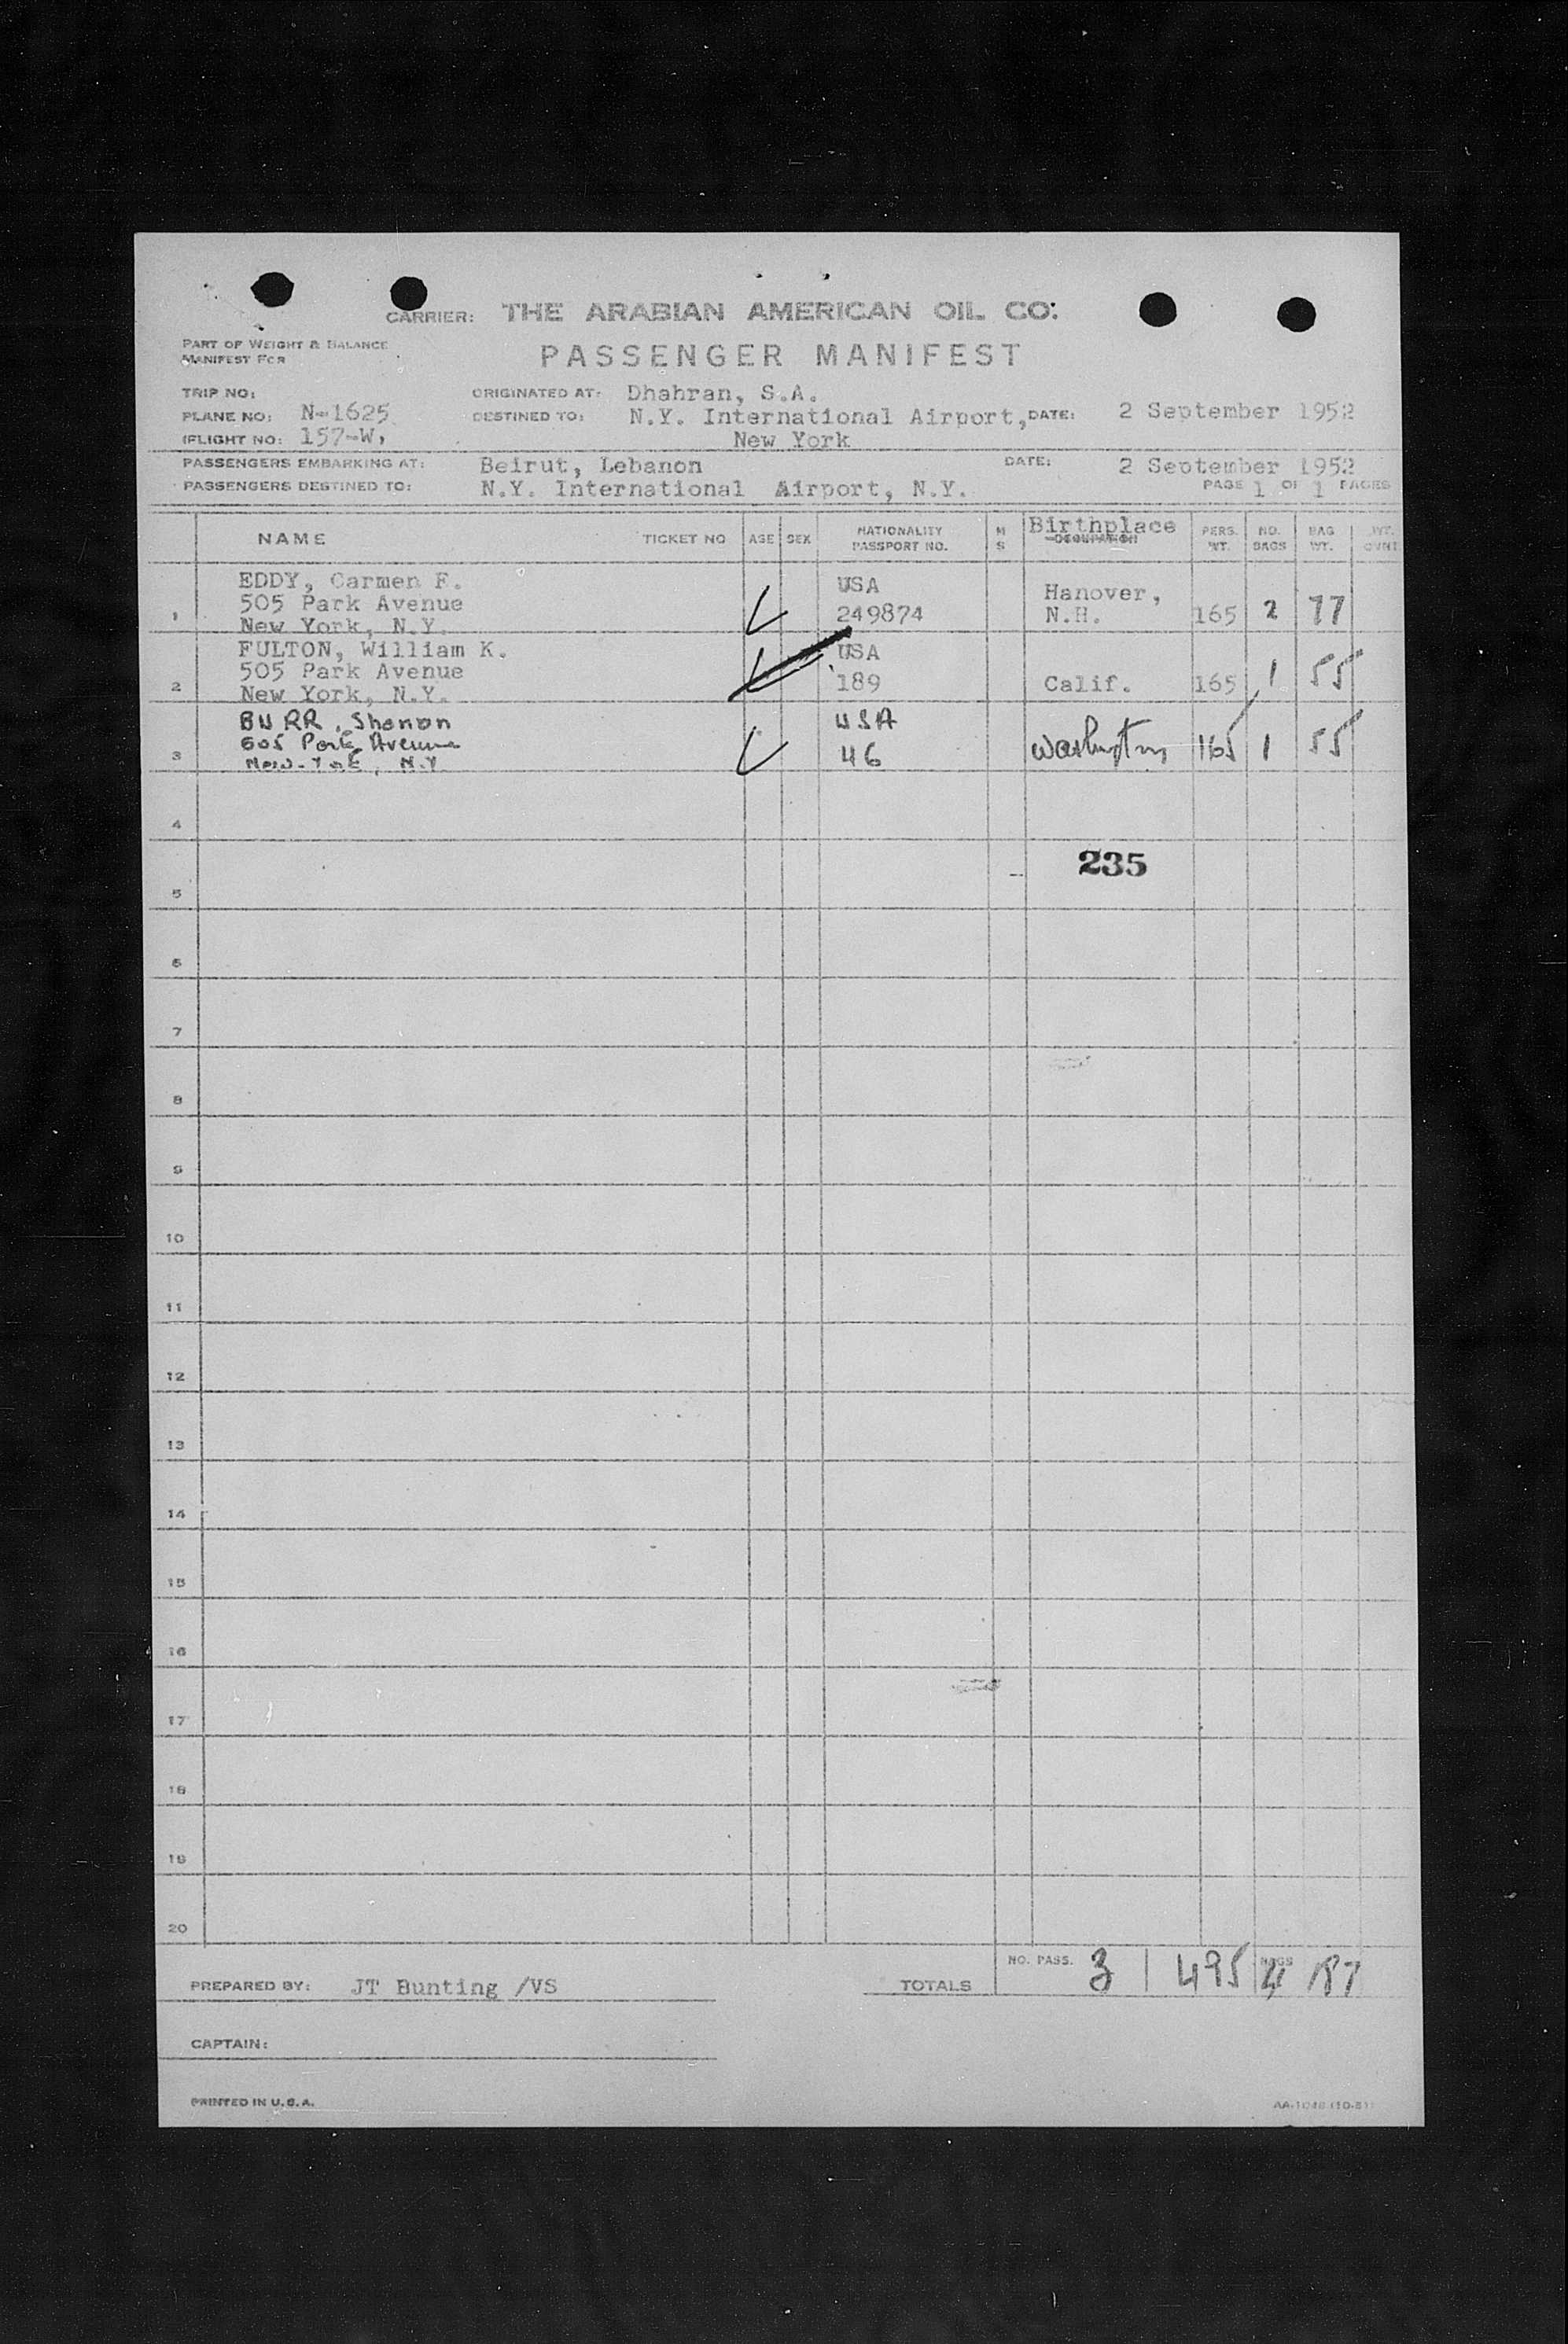 CARRIER: THE ARABIAN AMERICAN OIL CO.
PART OF WEIGHT & BALANCE
MANIFEST FOR
PASSENGER MANIFEST
TRIP NO: ORIGINATED AT: Dhahran, S.A.
PLANE NO: N-1625 DESTINED TO: N.Y. International Airport, DATE: 2 September 1952
FLIGHT NO: 157-W, New York
PASSENGERS EMBARKING AT: Beirut, Lebanon DATE: 2 September 1952
PASSENGERS DESTINED TO: N.Y. International Airport, N.Y. PAGE 1 OF 1 PAGES
NAME TICKET NO AGE SEX NATIONALITY PASSPORT NO. M S Birthplace OCCUPATION PERS. WT. NO. BAGS BAG WT. WT.
EDDY, Carmen F. USA
505 Park Avenue Hanover,
1 New York, N.Y. 249874 N.H. 165 2 77
FULTON, William K. USA
505 Park Avenue
2 New York, N.Y. 189 Calif. 165 1 55
BURR, Shanon USA
505 Park Avenue
3 New-York, N.Y. 46 Washington 165 1 55
4
235
5
6
7
8
9
10
11
12
13
14
15
16
17
18
19
20
PREPARED BY: JT Bunting /VS TOTALS NO. PASS. 3 495 BAGS 4 187
CAPTAIN:
PRINTED IN U.S.A.